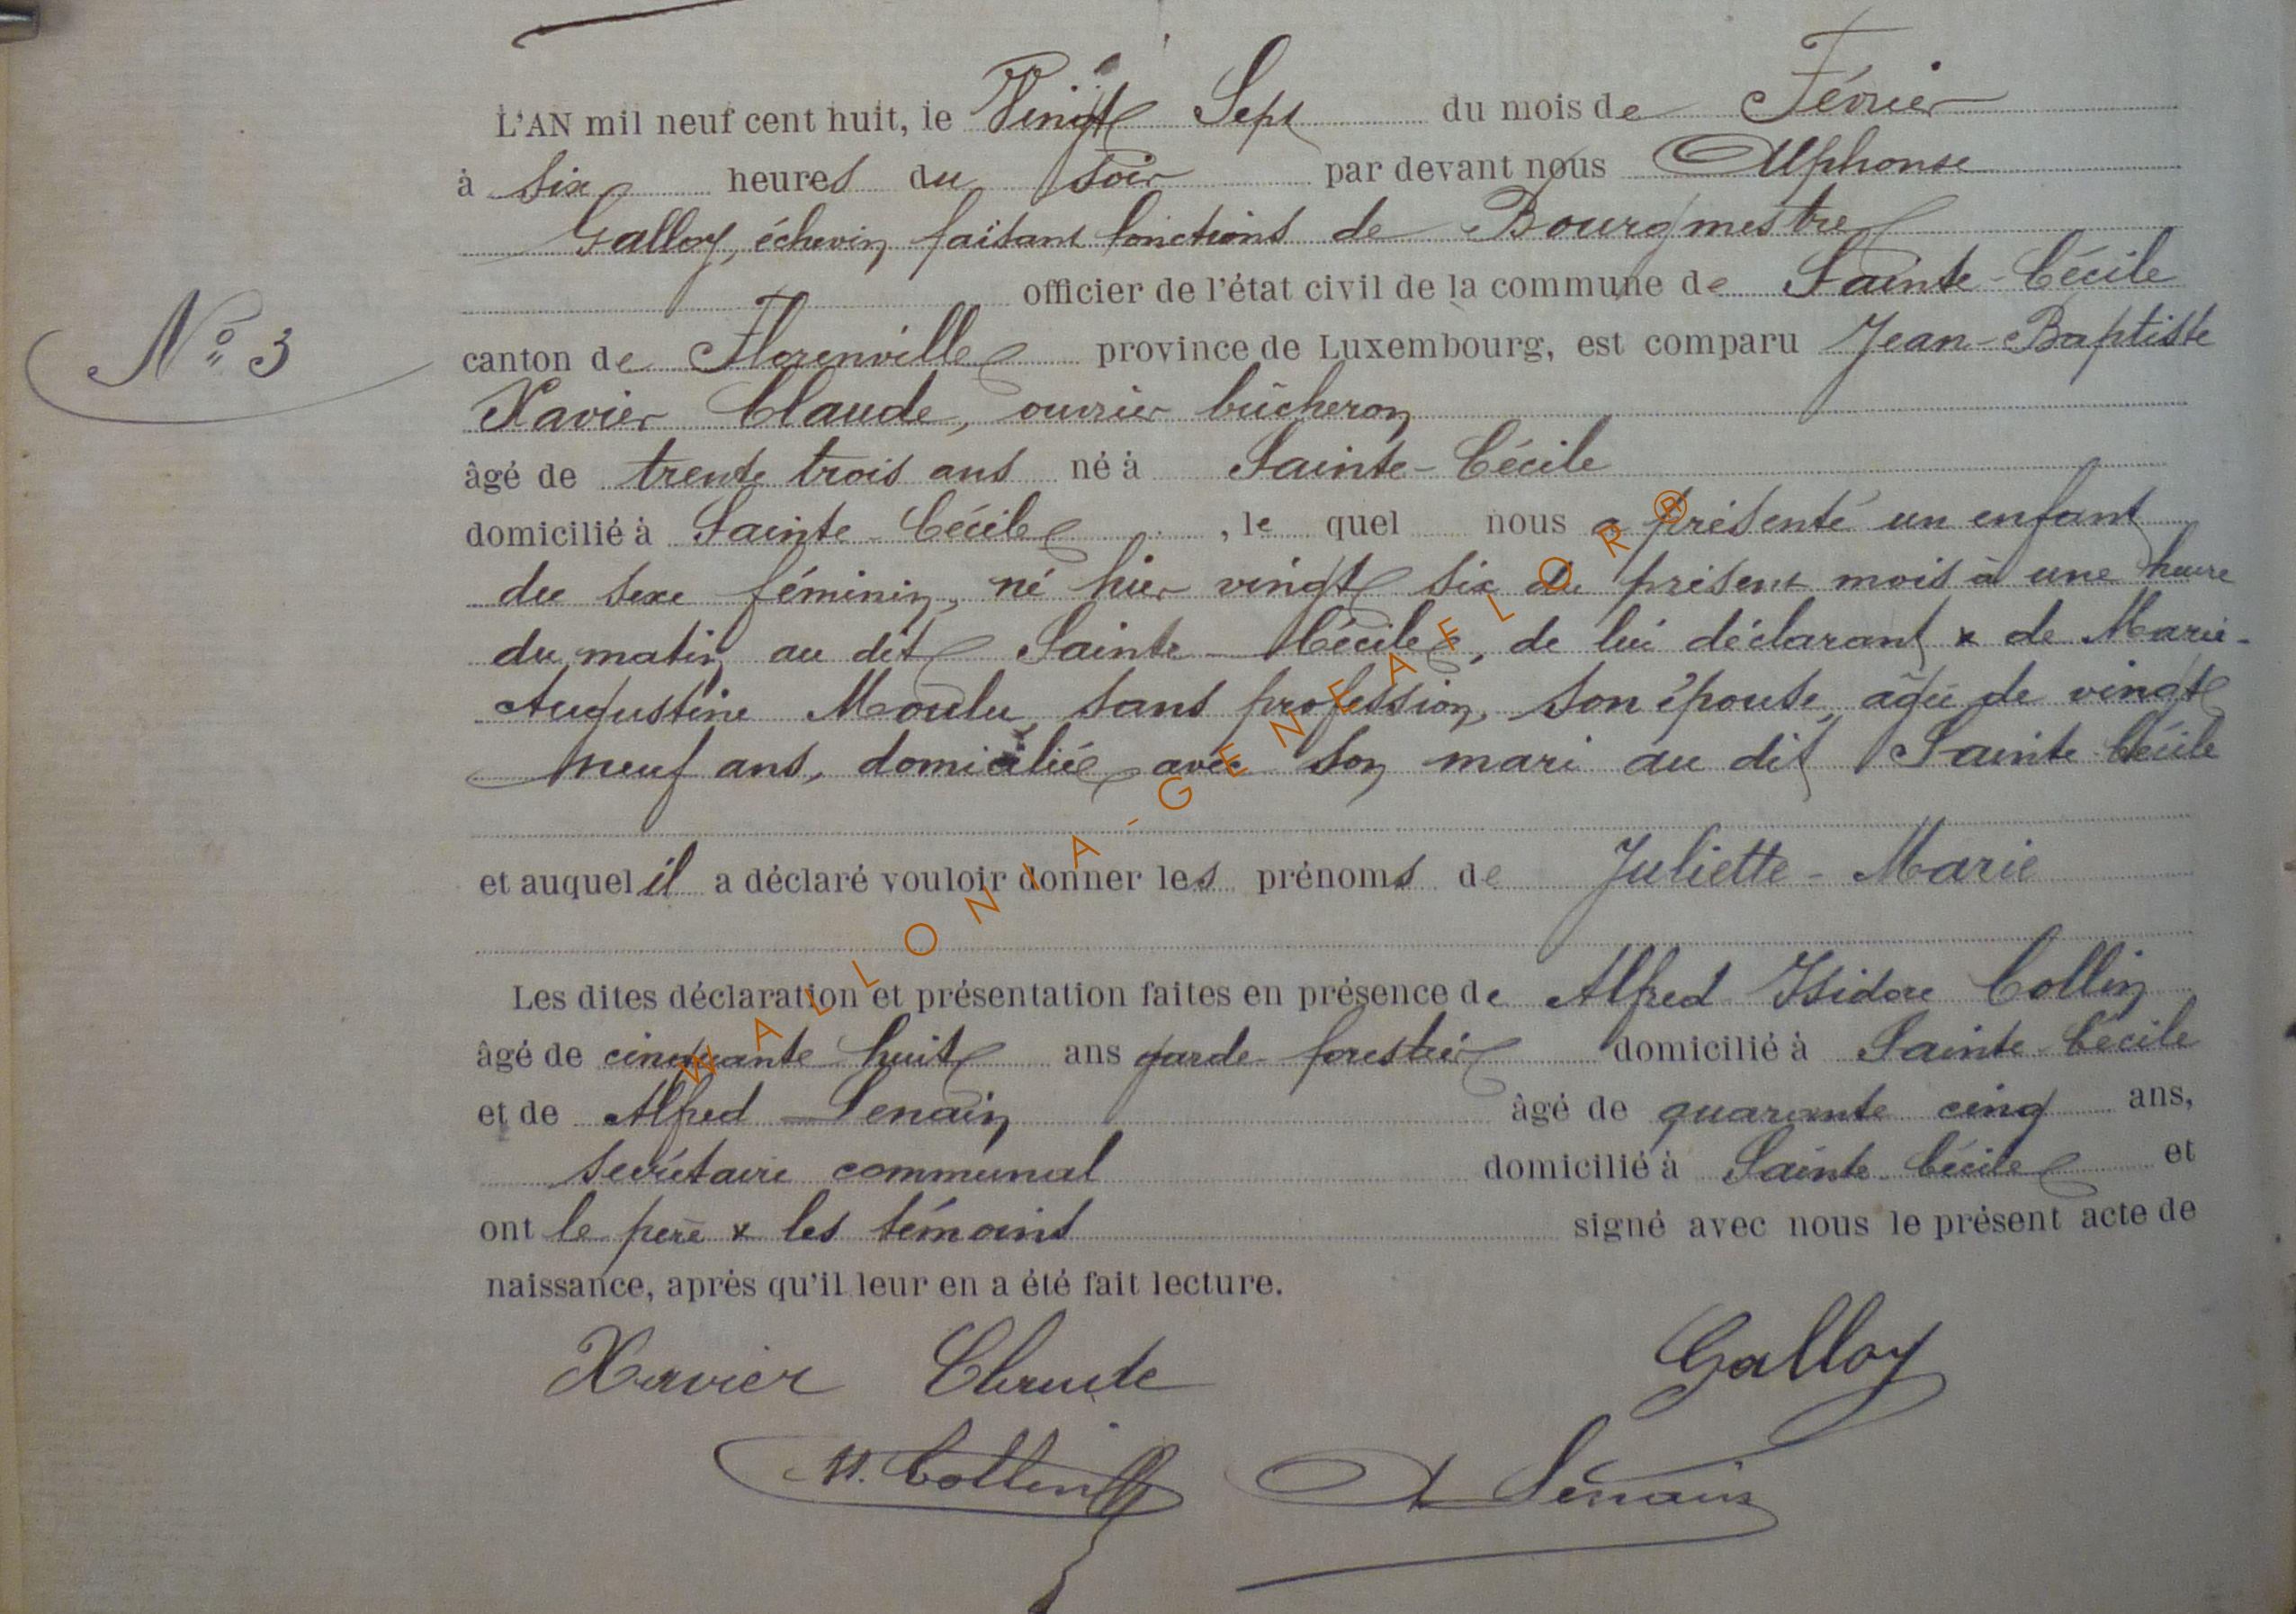 L'AN mil neuf cent huit, le Vingt Sept du mois de Février
à six heures du soir par devant nous Alphonse
Galloy, échevin faisant fonctions de Bourgmestre
officier de l'état civil de la commune de Sainte-Cécile
N° 3
canton de Florenville province de Luxembourg, est comparu Jean-Baptiste
Xavier Claude, ouvrier bûcheron
âgé de trente trois ans né à Sainte-Cécile
domicilié à Sainte Cécile, le quel nous a présenté un enfant
du sexe féminin, né hier vingt six du présent mois à une heure
du matin au dit Sainte-Cécile, de lui déclarant & de Marie-
Augustine Moulu, sans profession, son épouse, agée de vingt
neuf ans, domiciliée avec son mari au dit Sainte Cécile
et auquel il a déclaré vouloir donner les prénoms de Juliette-Marie
Les dites déclaration et présentation faites en présence de Alfred Isidore Collin
âgé de cinquante huit ans garde-forestier domicilié à Sainte-Cécile
et de Alfred Lenain âgé de quarante cinq ans,
secrétaire communal domicilié à Sainte-Cécile et
ont le père & les témoins signé avec nous le présent acte de
naissance, après qu'il leur en a été fait lecture.
Xavier Claude Galloy
Collin A Lenain
WALLONIA-GENEAFLOR®